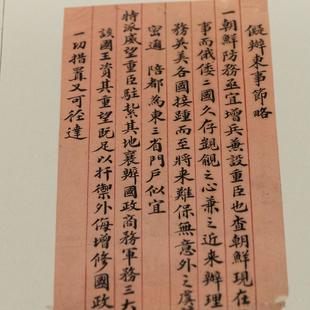 儗辦東事節略
一朝鮮防務亟宜增兵兼設重臣也查朝鮮現在
事而俄倭二國久存覬覦之心兼之近來辦理
務英美各國接踵而至將來難保無意外之虞
密邇 陪都為東三省門戶似宜
特派威望重臣駐紮其地襄辦國政商務軍務三大
該國王資其重望既足以扞禦外侮增修國政
一切措置又可徑達